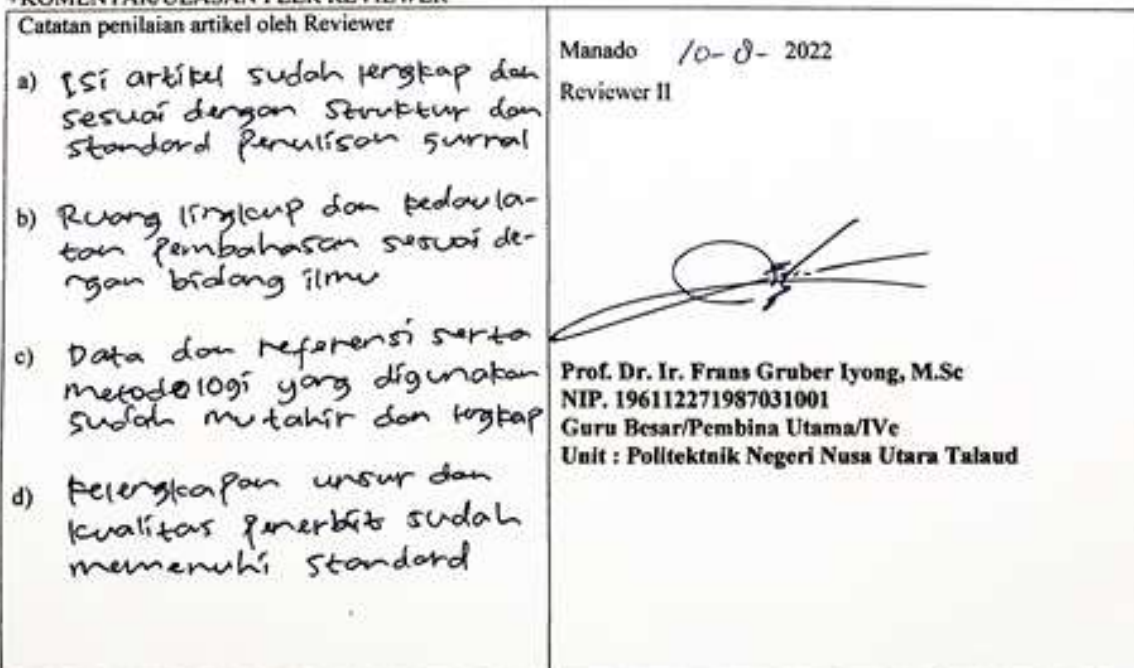 *KOMENTAR/ULASAN PEER REVIEWER
Catatan penilaian artikel oleh Reviewer
a) Isi artikel sudah lengkap dan
sesuai dengan Struktur dan
standard Penulisan Jurnal
b) Ruang lingkup dan kedaula-
tan Pembahasan sesuai de-
ngan bidang ilmu
c) Data dan referensi serta
metodologi yang digunakan
sudah mutahir dan lengkap
d) Kelengkapan unsur dan
kualitas Penerbit sudah
memenuhi standard
Manado 10-8- 2022
Reviewer II
Prof. Dr. Ir. Frans Gruber Iyong, M.Sc
NIP. 196112271987031001
Guru Besar/Pembina Utama/IVe
Unit : Politektnik Negeri Nusa Utara Talaud